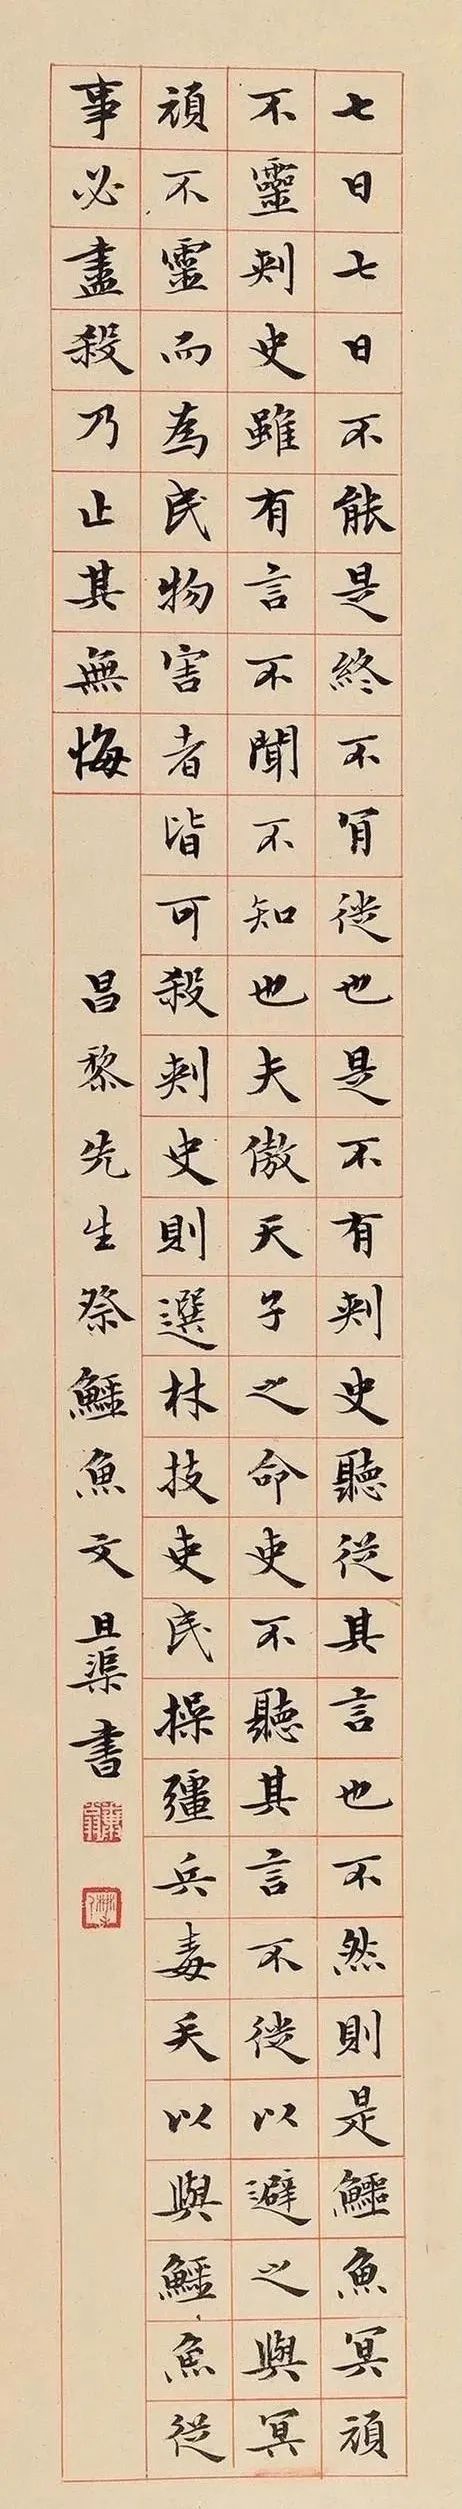 七日七日不能是終不肎徙也是不有刺史聽從其言也不然則是鱷魚冥頑
不靈刺史雖有言不聞不知也夫傲天子之命吏不聽其言不徙以避之與冥
頑不靈而為民物害者皆可殺刺史則選材技吏民操彊兵毒矢以與鱷魚從
事必盡殺乃止其無悔
昌黎先生祭鱷魚文 且渠書